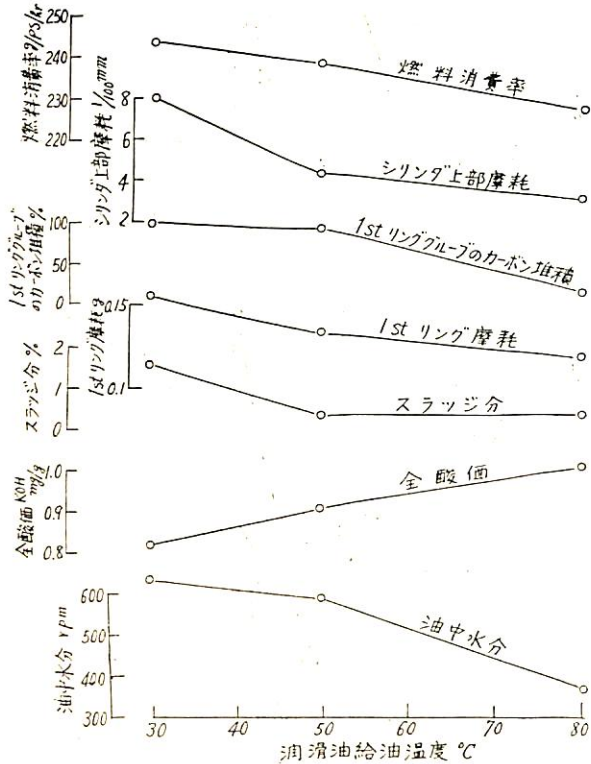 燃料消費率 g/PS/hr
250
240
230
220
燃料消費率
シリンダ上部摩耗 1/100mm
8
6
4
2
シリンダ上部摩耗
1stリンググルーブ
のカーボン堆積 %
100
50
0
1stリンググループのカーボン堆積
1stリング摩耗 g
0.15
0.1
1stリング摩耗
スラッジ分 %
2
1
0
スラッジ分
全酸価 KOH
mg/g
1.0
0.9
0.8
全酸価
油中水分 ppm
600
500
400
300
油中水分
30 40 50 60 70 80
潤滑油給油温度 ℃